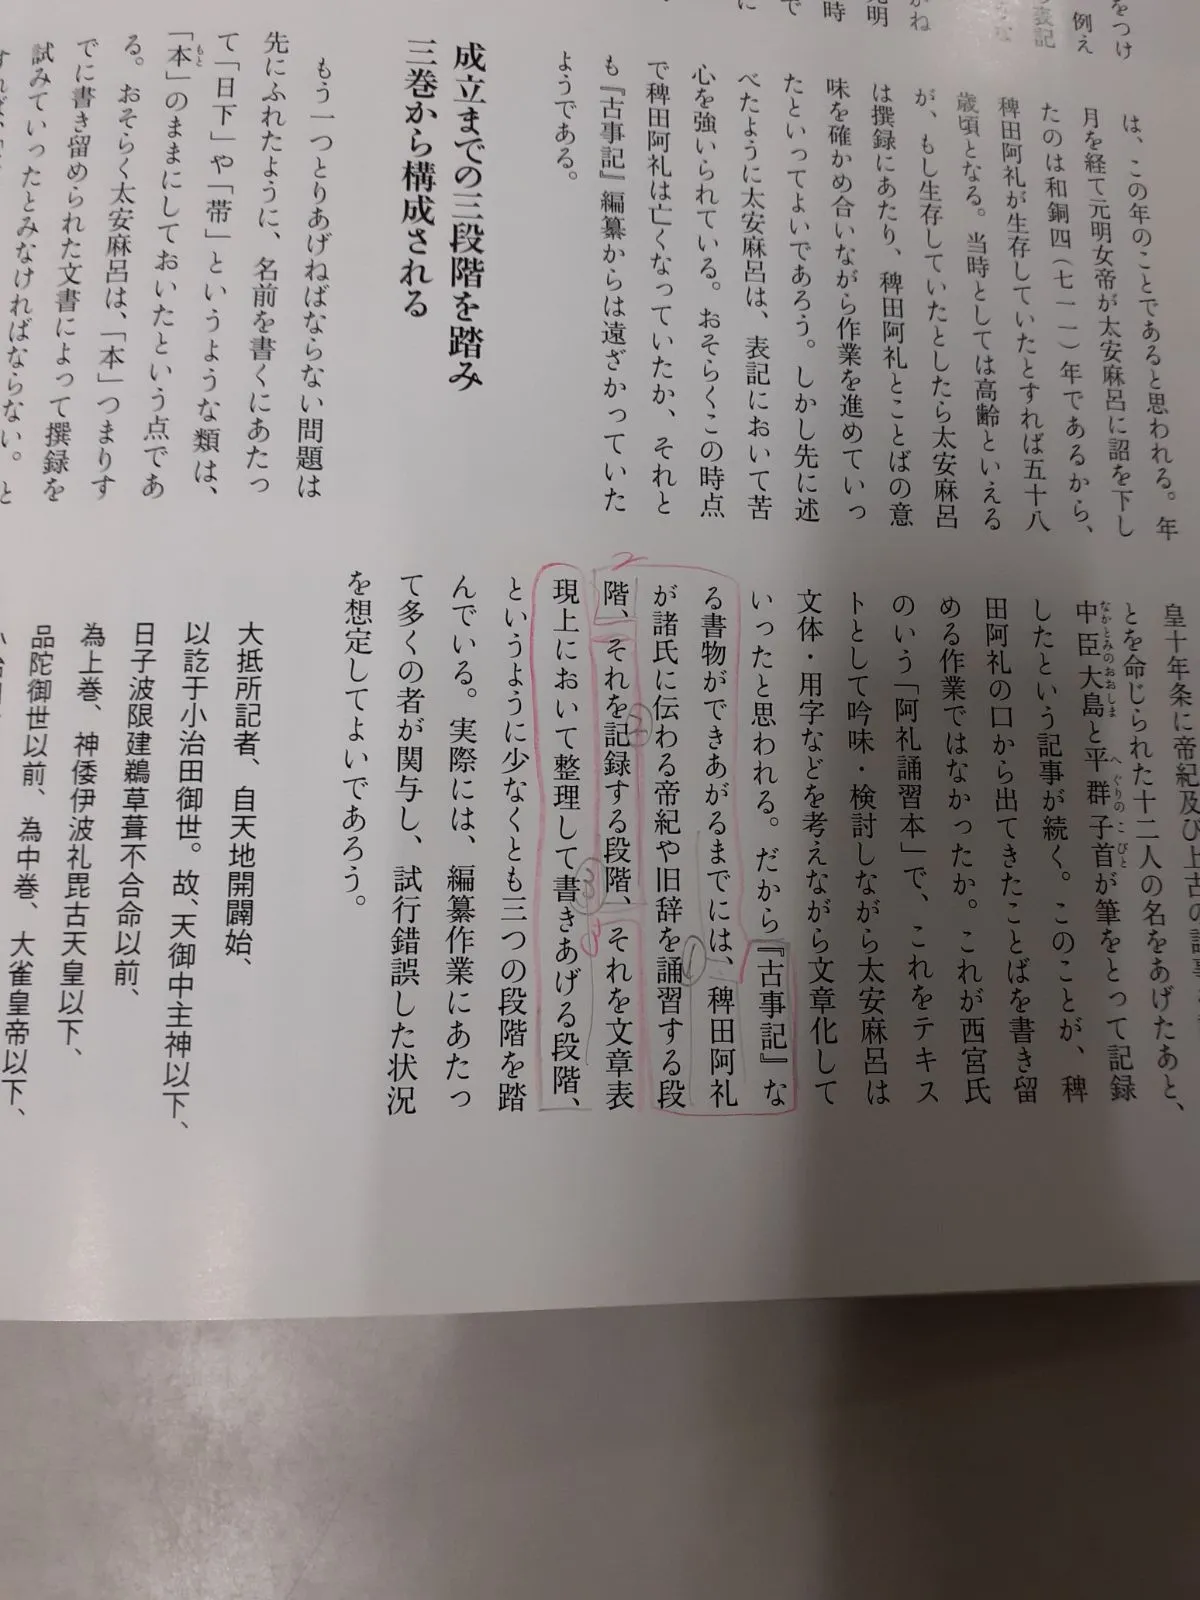 をつけ
例え
表記
元明
時
で
に
は、この年のことであると思われる。年
月を経て元明女帝が太安麻呂に詔を下し
たのは和銅四(七一一)年であるから、
稗田阿礼が生存していたとすれば五十八
歳頃となる。当時としては高齢といえる
が、もし生存していたとしたら太安麻呂
は撰録にあたり、稗田阿礼とことばの意
味を確かめ合いながら作業を進めていっ
たといってよいであろう。しかし先に述
べたように太安麻呂は、表記において苦
心を強いられている。おそらくこの時点
で稗田阿礼は亡くなっていたか、それと
も『古事記』編纂からは遠ざかっていた
ようである。
成立までの三段階を踏み
三巻から構成される
もう一つとりあげねばならない問題は
先にふれたように、名前を書くにあたっ
て「日下」や「帯」というような類は、
「本」のままにしておいたという点であ
もと
る。おそらく太安麻呂は、「本」つまりす
でに書き留められた文書によって撰録を
試みていったとみなければならない。と
皇十年条に帝紀及び上古の諸事を
とを命じられた十二人の名をあげたあと、
中臣大島と平群子首が筆をとって記録
なかとみのおおしま へぐりのこびと
したという記事が続く。このことが、稗
田阿礼の口から出てきたことばを書き留
める作業ではなかったか。これが西宮氏
のいう「阿礼誦習本」で、これをテキス
トとして吟味・検討しながら太安麻呂は
文体・用字などを考えながら文章化して
いったと思われる。だから『古事記』な
る書物ができあがるまでには、稗田阿礼
が諸氏に伝わる帝紀や旧辞を誦習する段
階、それを記録する段階、それを文章表
現上において整理して書きあげる段階、
というように少なくとも三つの段階を踏
んでいる。実際には、編纂作業にあたっ
て多くの者が関与し、試行錯誤した状況
を想定してよいであろう。
①
②
③
2
3
大抵所記者、自天地開闢始、
以訖于小治田御世。故、天御中主神以下、
日子波限建鵜草葺不合命以前、
為上巻、神倭伊波礼毘古天皇以下、
品陀御世以前、為中巻、大雀皇帝以下、